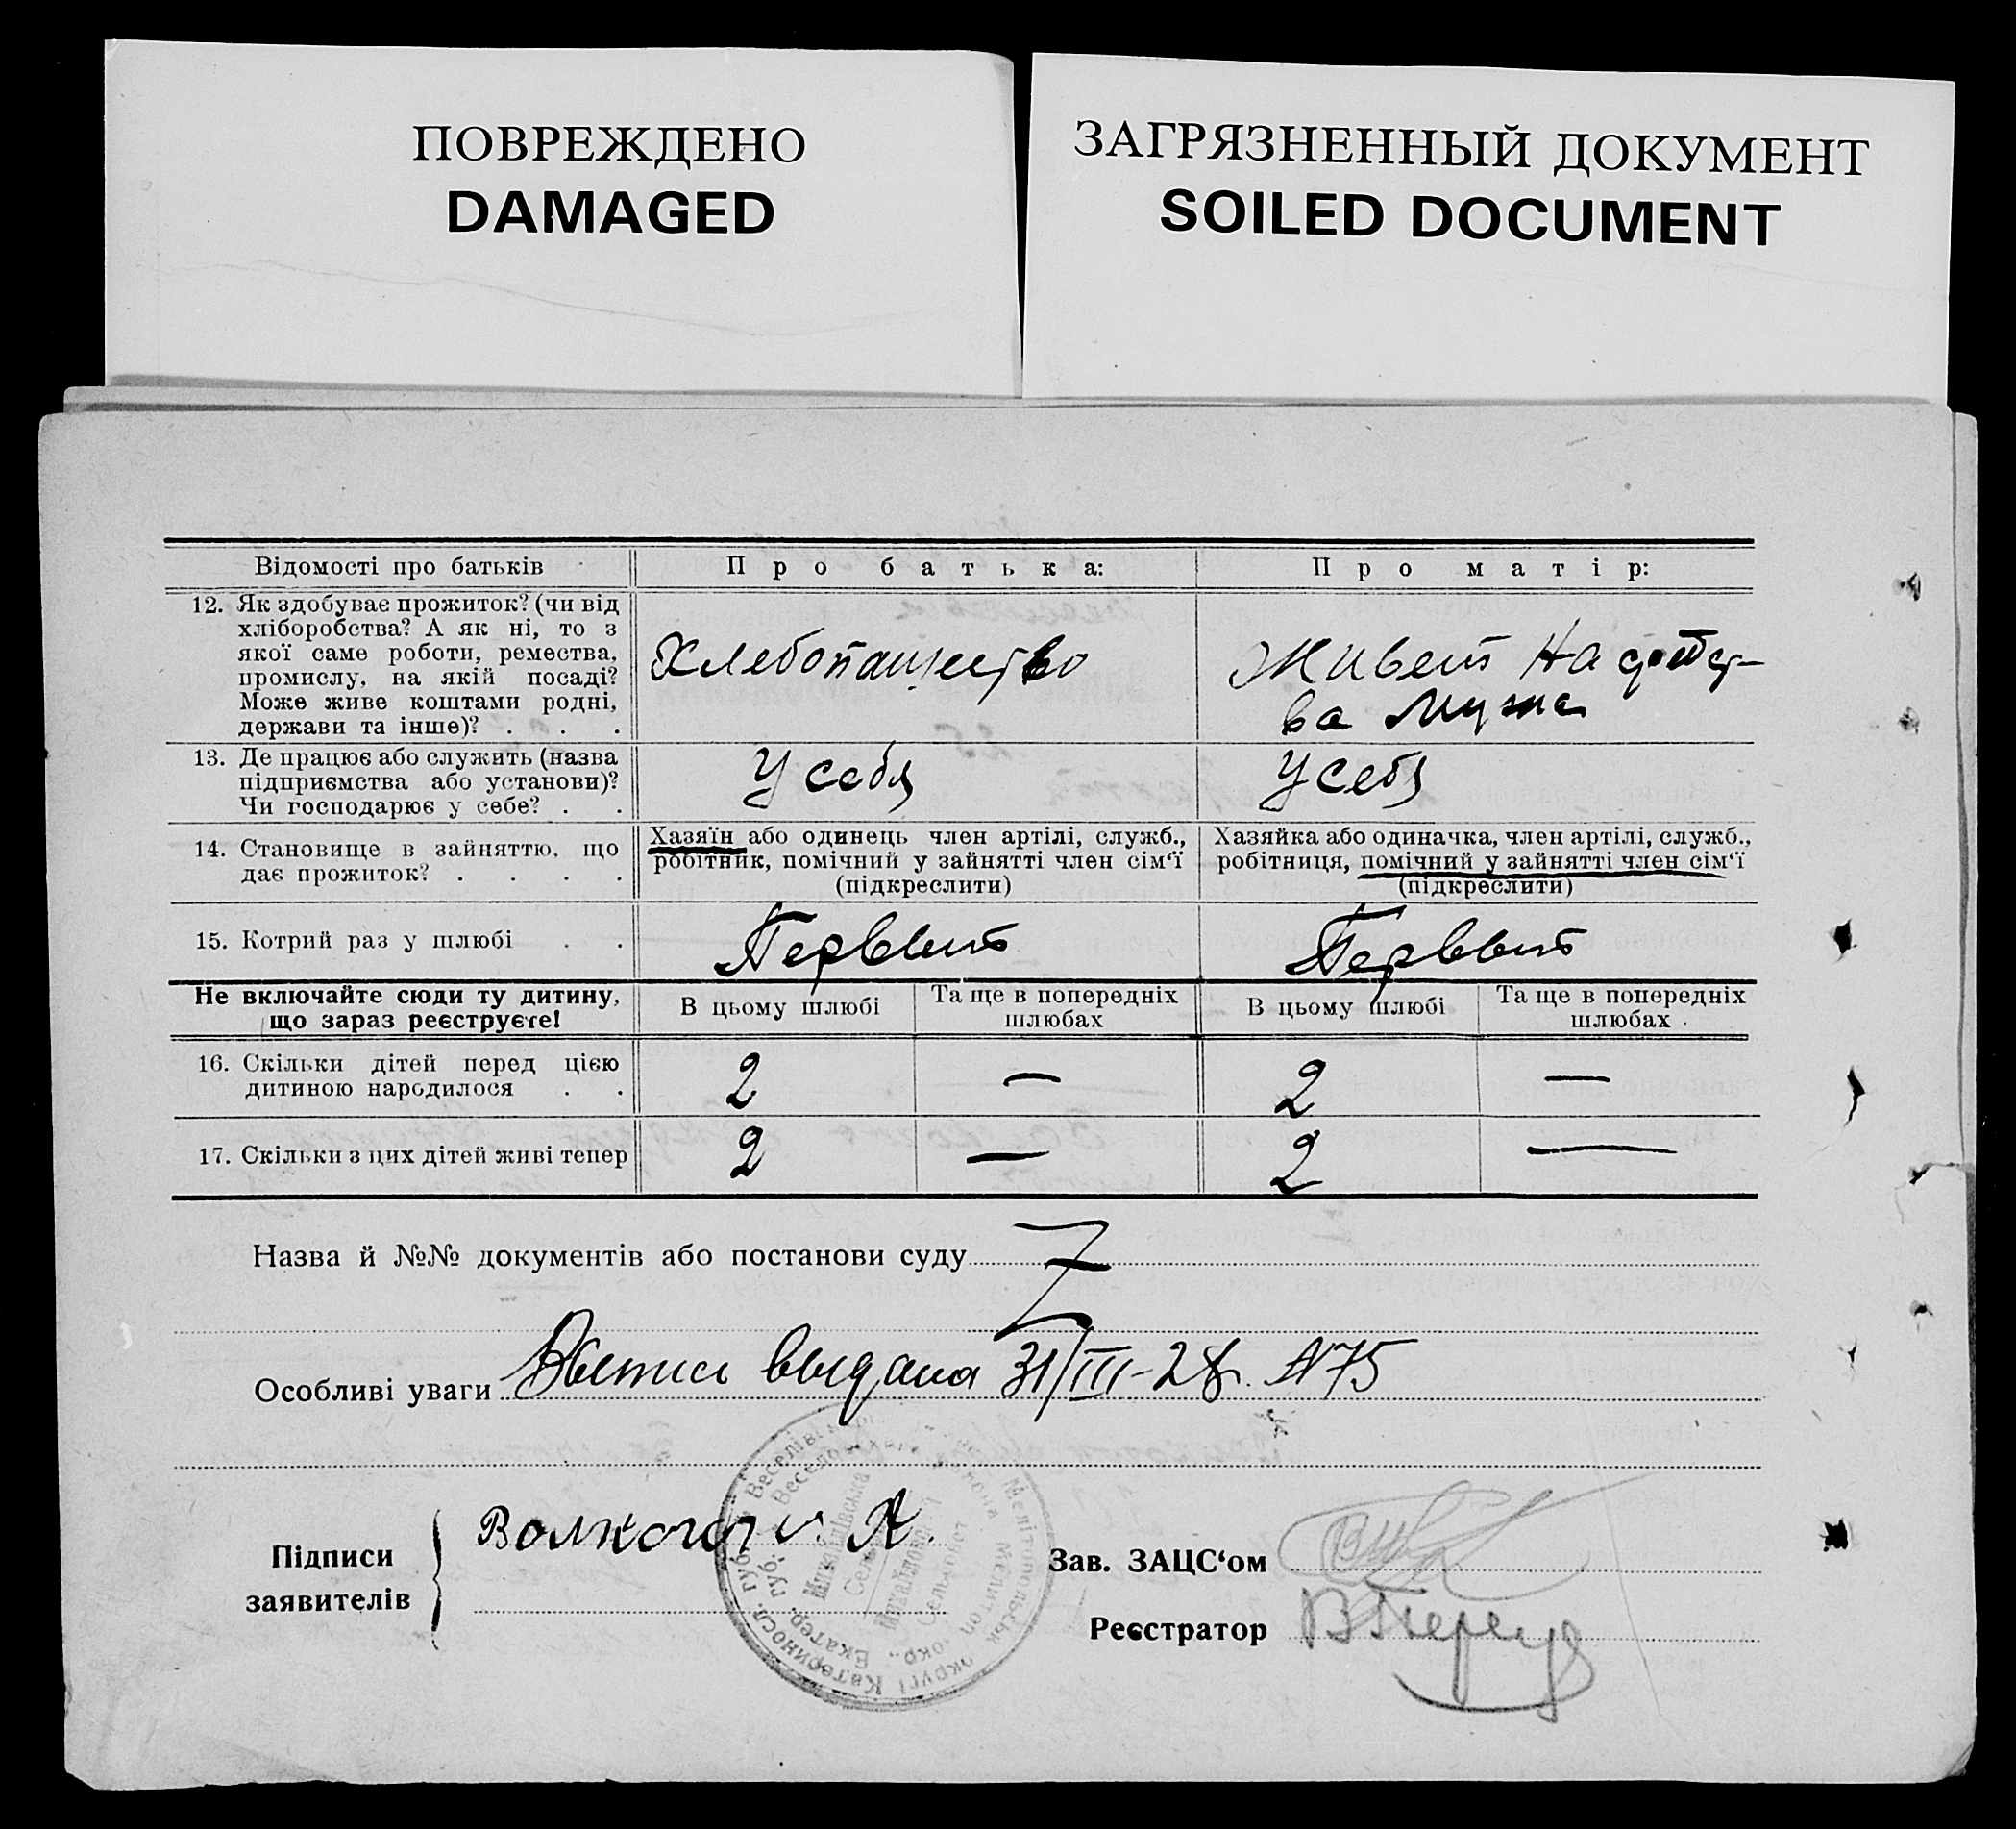 ПОВРЕЖДЕНО
DAMAGED
ЗАГРЯЗНЕННЫЙ ДОКУМЕНТ
SOILED DOCUMENT
Відомості про батьків
Про батька:
Про матір:
12. Як здобуває прожиток? (чи від
хліборобства? А як ні, то з
якої саме роботи, ремества,
промислу, на якій посаді?
Може живе коштами родні,
держави та інше)? . . .
Хлебопашество
Живет на средст-
ва мужа
13. Де працює або служить (назва
підприємства або установи)?
Чи господарює у себе? . .
У себя
У себя
14. Становище в зайняттю, що
дає прожиток? . . . .
Хазяїн або одинець член артілі, служб.,
робітник, помічний у зайнятті член сім‘ї
(підкреслити)
Хазяйка або одиначка, член артілі, служб.,
робітниця, помічний у зайнятті член сім‘ї
(підкреслити)
15. Котрий раз у шлюбі . .
Первый
Первый
Не включайте сюди ту дитину,
що зараз реєструєте!
В цьому шлюбі
Та ще в попередніх
шлюбах
В цьому шлюбі
Та ще в попередніх
шлюбах
16. Скільки дітей перед цією
дитиною народилося . .
2 — 2 —
17. Скільки з цих дітей живі тепер
2 — 2 —
Назва й №№ документів або постанови суду
Особливі уваги
выдана 31/III-28. №75
Підписи
заявителів
А.
Зав. ЗАЦС‘ом
Реєстратор
Мелітопольськ округі Катериносл. губ.
Екатер. губ.
Сельсовет